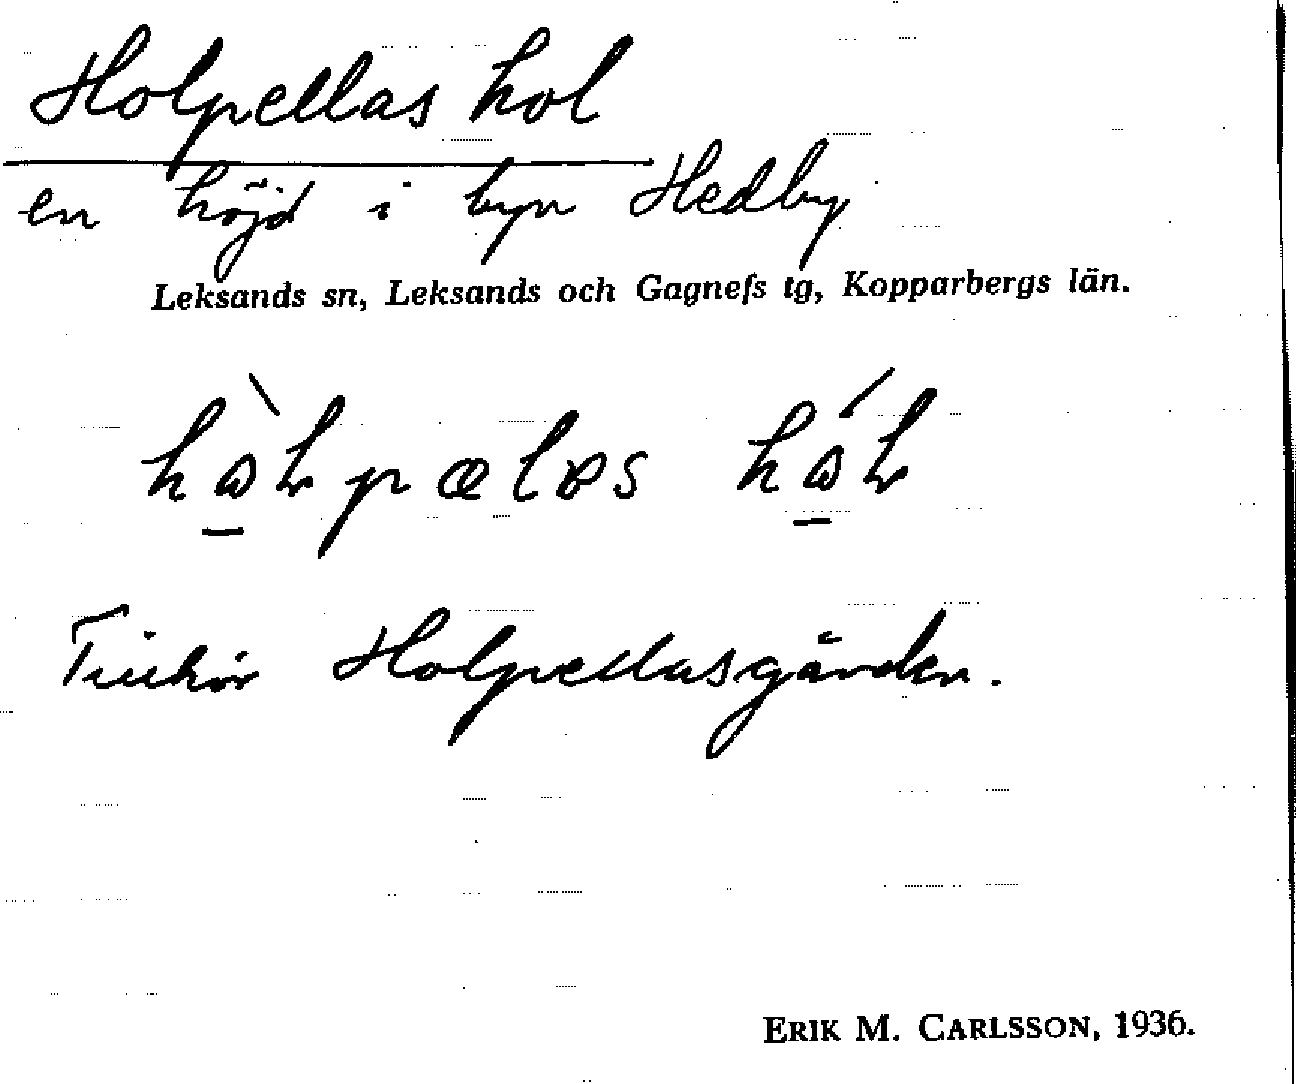 Holpellas hol
en höjd i byn Hedby
Leksands sn, Leksands och Gagnefs tg, Kopparbergs län.
Tillhör Holpellasgården.
ERIK M. CARLSSON, 1936.